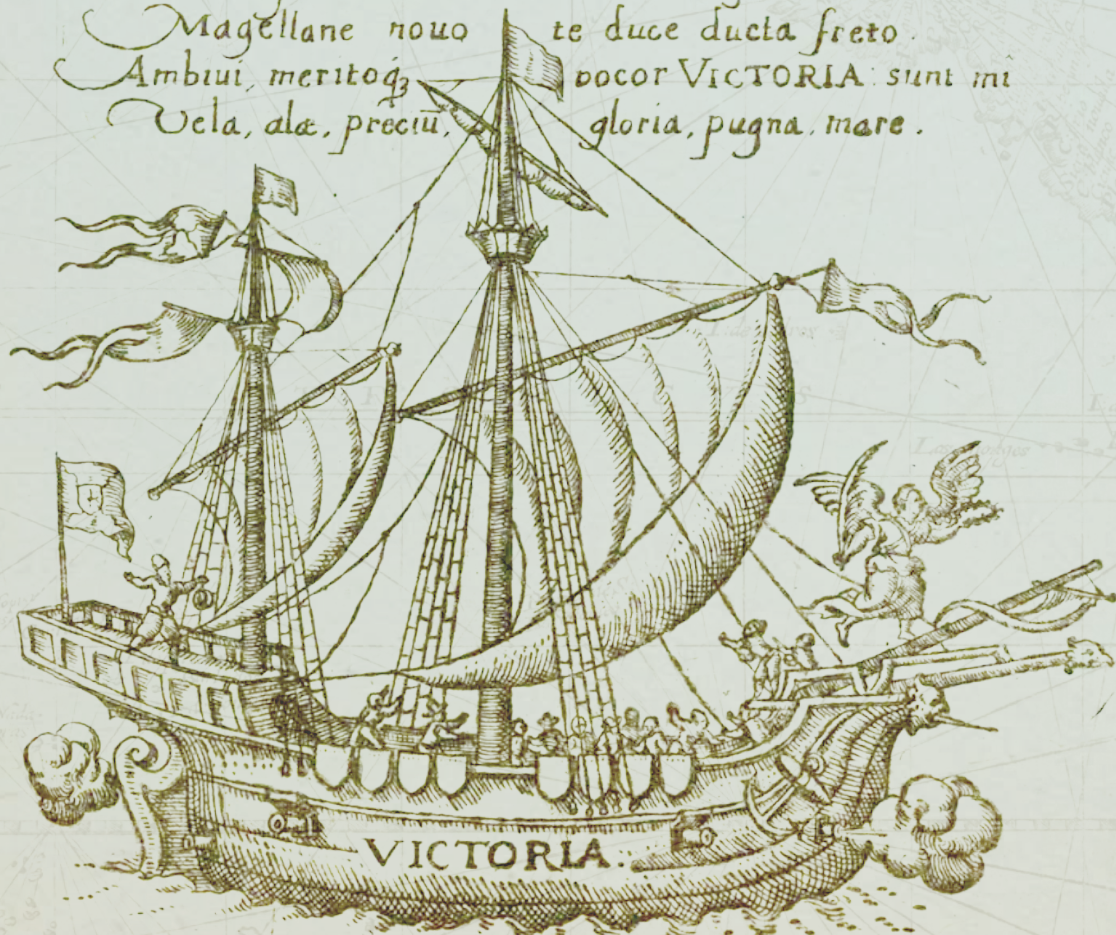 Magellane nouo te duce ducta freto.
Ambiui, meritoqꝫ vocor VICTORIA: sunt mi
Vela, alæ, preciū, gloria, pugna, mare.
VICTORIA.